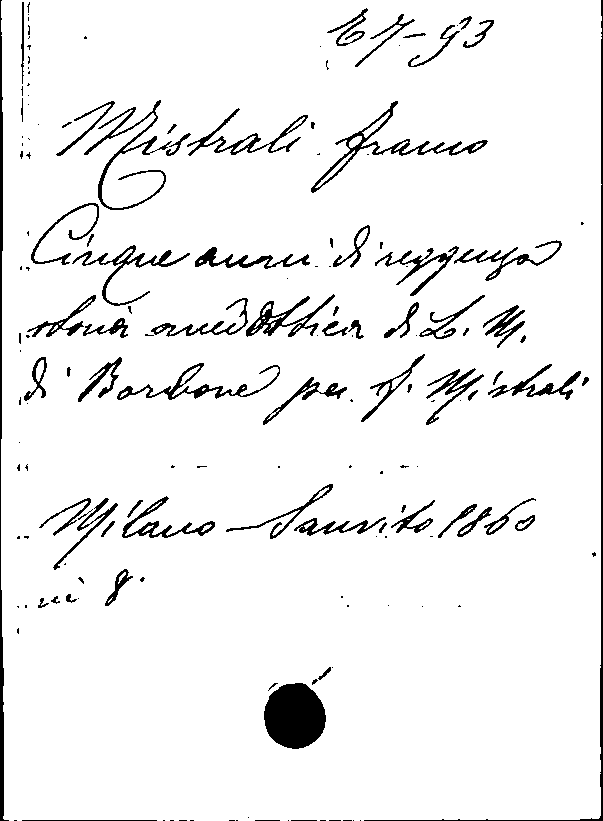 E7-93
Mistrali Franco
Cinque anni di reggenza
storia anedottica di L. M.
di Borbone per F. Mistrali
Milano - Sanvito 1860
in 8.